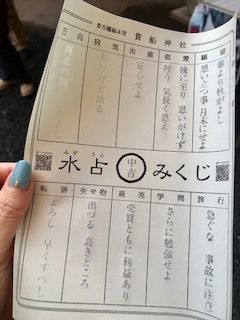 貴布禰総本宮 貴船神社
願望
春より秋がよし
思い立つ事 月末にせよ
恋愛
後に至り 思いがけず
叶う 気長く思え
出産
安心せよ
病気
長びけど治る
方向
西北の間
よろし
水占 みくじ
みず うら
中吉
旅行
急ぐな 事故に注意
学問
さらに勉強せよ
商売
売買ともに利益あり
失せ物
出づる 高きところ
転居
よろし 早くすべし